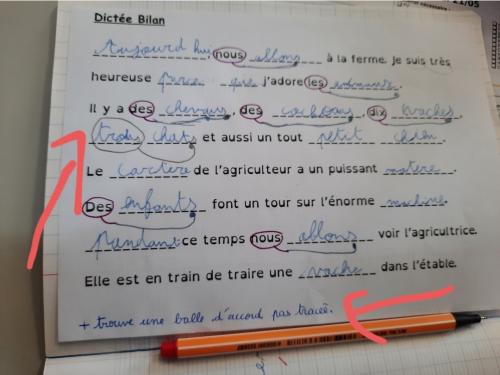 Dictée Bilan
Aujourd'hui, nous allons à la ferme. je suis très
heureuse parce que j'adore les animaux.
Il y a des chevaux, des cochons, dix vaches,
trois chats et aussi un tout petit chien.
Le de l'agriculteur a un puissant
Des enfants font un tour sur l'énorme machine.
Pendant ce temps nous allons voir l'agricultrice.
Elle est en train de traire une vache dans l'étable.
+ trouve une balle d'accord pas tracée.